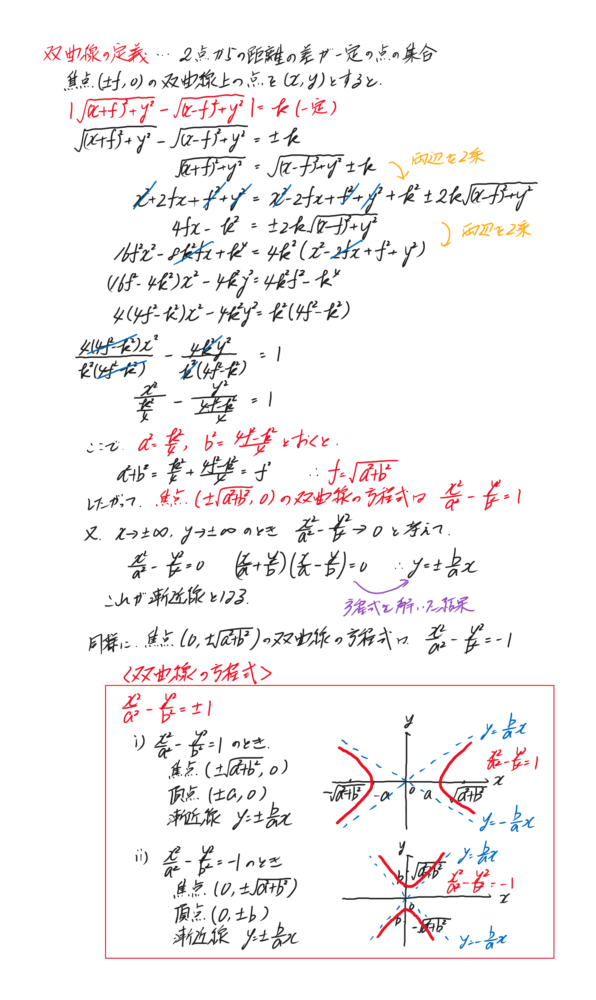 双曲線の定義 … 2点からの距離の差が一定の点の集合
焦点(±f,0)の双曲線上の点を(x,y)とすると、
|√((x+f)²+y²) - √((x-f)²+y²)| = k (一定)
√((x+f)²+y²) - √((x-f)²+y²) = ±k
√((x+f)²+y²) = √((x-f)²+y²) ±k
両辺を2乗
x²+2fx+f²+y² = x²-2fx+f²+y²+k²±2k√((x-f)²+y²)
4fx-k² = ±2k√((x-f)²+y²)
両辺を2乗
16f²x²-8k²fx+k⁴ = 4k²(x²-2fx+f²+y²)
(16f²-4k²)x²-4k²y² = 4k²f²-k⁴
4(4f²-k²)x²-4k²y² = k²(4f²-k²)
4(4f²-k²)x²/k²(4f²-k²) - 4k²y²/k²(4f²-k²) = 1
x²/(k²/4) - y²/((4f²-k²)/4) = 1
ここで、a²=k²/4, b²=(4f²-k²)/4 とおくと、
a²+b² = k²/4 + (4f²-k²)/4 = f² ∴ f=√(a²+b²)
したがって、焦点(±√(a²+b²),0)の双曲線の方程式は x²/a² - y²/b² = 1
又、x→±∞, y→±∞のとき x²/a² - y²/b² → 0 と考えて、
x²/a² - y²/b² = 0 (x/a+y/b)(x/a-y/b)=0 ∴ y=±b/a x
これが漸近線となる。
方程式を解いた結果
同様に、焦点(0,±√(a²+b²))の双曲線の方程式は x²/a² - y²/b² = -1
〈双曲線の方程式〉
x²/a² - y²/b² = ±1
i) x²/a² - y²/b² = 1 のとき
焦点(±√(a²+b²),0)
頂点(±a,0)
漸近線 y=±b/a x
y
y=b/a x
x²/a² - y²/b² = 1
x
-√(a²+b²)
-a
0
a
√(a²+b²)
y=-b/a x
ii) x²/a² - y²/b² = -1 のとき
焦点(0,±√(a²+b²))
頂点(0,±b)
漸近線 y=±b/a x
y
y=b/a x
√(a²+b²)
b
x²/a² - y²/b² = -1
x
0
b
-√(a²+b²)
y=-b/a x